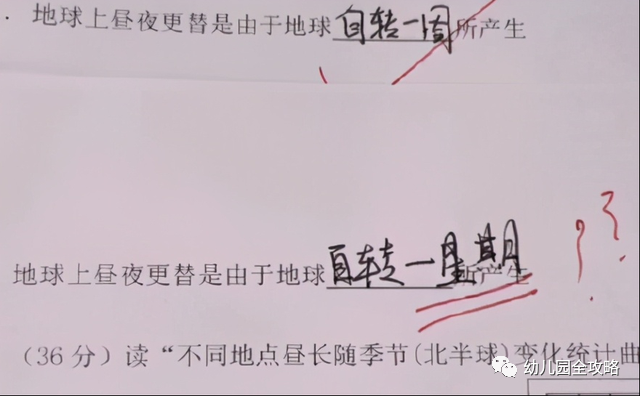 地球上昼夜更替是由于地球自转一周所产生
地球上昼夜更替是由于地球自转一星期所产生
??
(36分)读“不同地点昼长随季节(北半球)变化统计曲
幼儿园全攻略